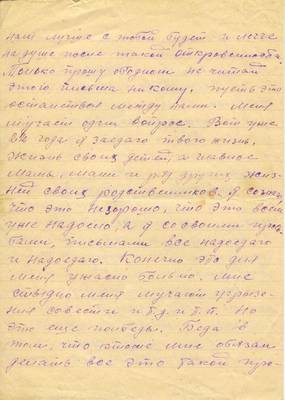 нам лучше с тобой будет и легче
на душе после такой откровенности.
Только прошу об одном не читай
этого письма никому, пусть это
останется между нами. Меня
мучает один вопрос. Вот уже
22 года я заедаю твою жизнь,
жизнь своих детей, а главное
мамы, мани и ряд других жиз-
ней своих родственников. Я сознаю
что это нехорошо, что это всем
уже надоело, а я со своими прось
бами, письмами все надоедаю
и надоедаю. Конечно это для
меня ужасно больно. Мне
стыдно меня мучают угрызе-
ния совести и т.д. и т.п. Но
это еще полбеды. Беда в
том, что кто же мне обязан
делать все это такой про-